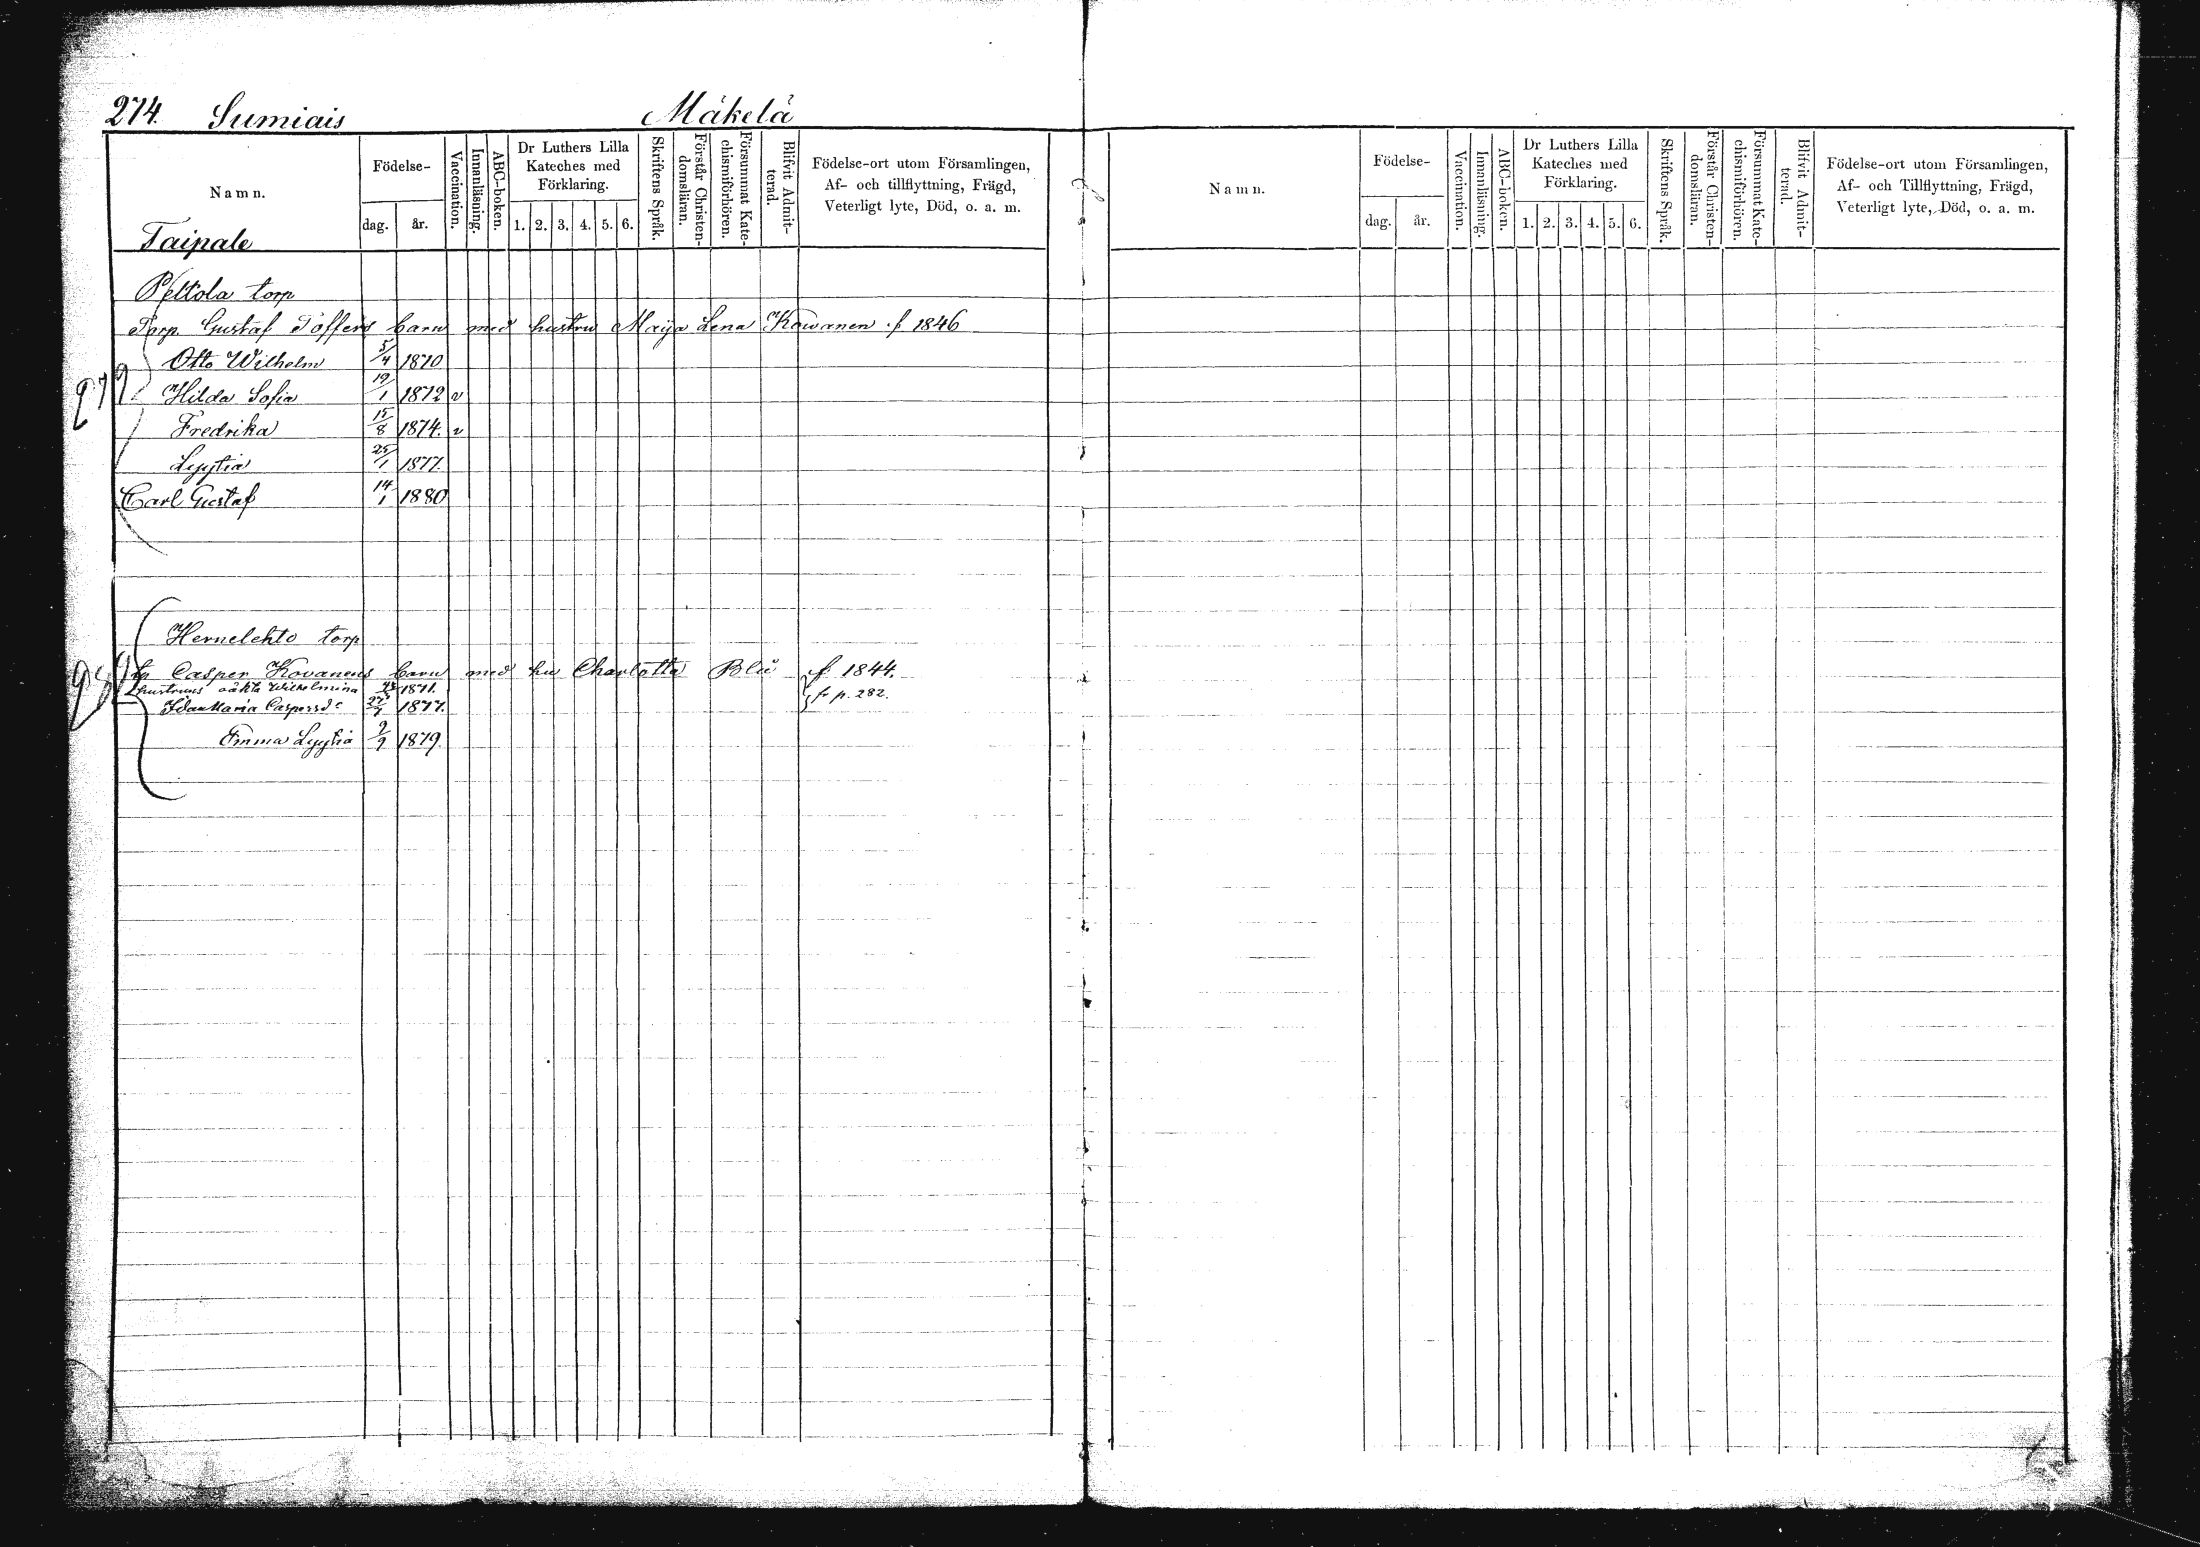 274. Sumiais Mäkelä
Namn. Födelse- dag. år. Vaccination. Innanläsning. ABC-boken. Dr Luthers Lilla Kateches med Förklaring. 1. 2. 3. 4. 5. 6. Skriftens Språk. Förstår Christendomsläran. Försummat Katechismiförhören. Blifvit Admitterad. Födelse-ort utom Församlingen, Af- och tillflyttning, Frägd, Veterligt lyte, Död, o. a. m.
Namn. Födelse- dag. år. Vaccination. Innanläsning. ABC-boken. Dr Luthers Lilla Kateches med Förklaring. 1. 2. 3. 4. 5. 6. Skriftens Språk. Förstår Christendomsläran. Försummat Katechismiförhören. Blifvit Admitterad. Födelse-ort utom Församlingen, Af- och Tillflyttning, Frägd, Veterligt lyte, Död, o. a. m.
Taipale
Peltola torp
Torp. Gustaf Toffers barn med hustru Maija Lena Kowanen f 1846
Otto Wilhelm 5/4 1870
279
Hilda Sofia 19/1 1872 v
Fredrika 15/8 1874. v
Lyytia 25/1 1877.
Carl Gustaf 14/1 1880
Hernelehto torp
Casper Kovanens barn med hu Charlotta Blå f 1844.
hustruns oäkta Wilhelmina 1871.
Ida Maria Caspersdr 1877. fr p. 282.
Emma Lyytia 9/9 1879.